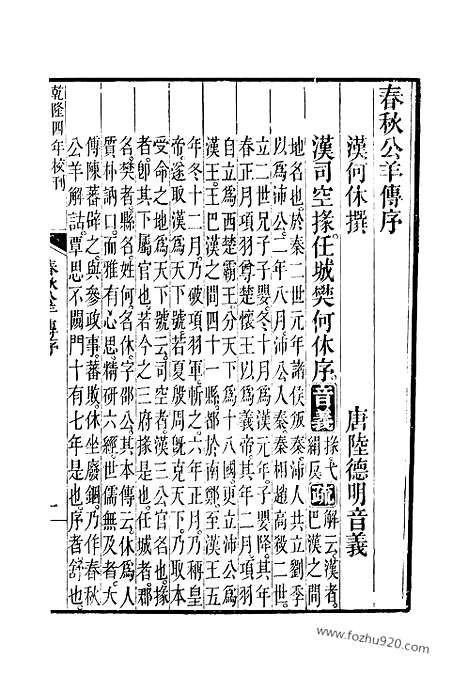 春秋公羊傳序
漢何休撰 唐陸德明音義
漢司空掾任城樊何休序 音義 掾弋絹反 疏 解云漢者巴漢之間
地名也於秦二世元年諸侯叛秦沛人共立劉季
以為沛公二年八月沛公入秦秦相趙高殺二世
立二世兄子子嬰冬十月為漢元年子嬰降其年
春正月項羽尊楚懷王以為義帝其年二月項羽
自立為西楚霸王分天下為十八國更立沛公為
漢王王巴漢之間四十一縣都於南鄭至漢王五
年冬十二月乃破項羽軍斬之六年正月乃稱皇
帝遂取漢為天下號若夏殷周既克天下乃取本
受命之地為天下號云司空者漢三公官名也掾
者即其下屬官也若今之三府掾是也任城者郡
名樊者縣名姓何名休字邵公其本傳云休為人
質朴訥口而雅有心思精研六經世儒無及者大
傅陳蕃辟之與參政事蕃敗休坐廢錮乃作春秋
公羊解詁覃思不闚門十有七年是也序者舒也
乾隆四年校刊
春秋公羊傳序
一
www.fozhu920.com